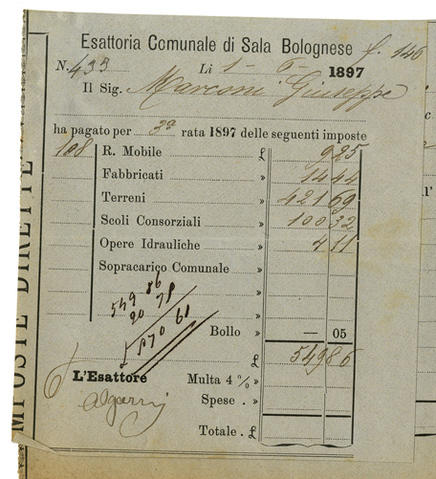 Esattoria Comunale di Sala Bolognese f. 146
N. 433 Li 1 - 6 - 1897
Il Sig. Marconi Giuseppe
ha pagato per 3ª rata 1897 delle seguenti imposte
108 R. Mobile £ 9 25
Fabbricati » 14 44
Terreni » 421 69
Scoli Consorziali » 100 32
Opere Idrauliche » 4 11
Sopracarico Comunale »
549 86
20 78
570 61
Bollo » — 05
£ 549 86
L'Esattore Multa 4 % »
Spese . »
Totale . £
IMPOSTE DIRETTE